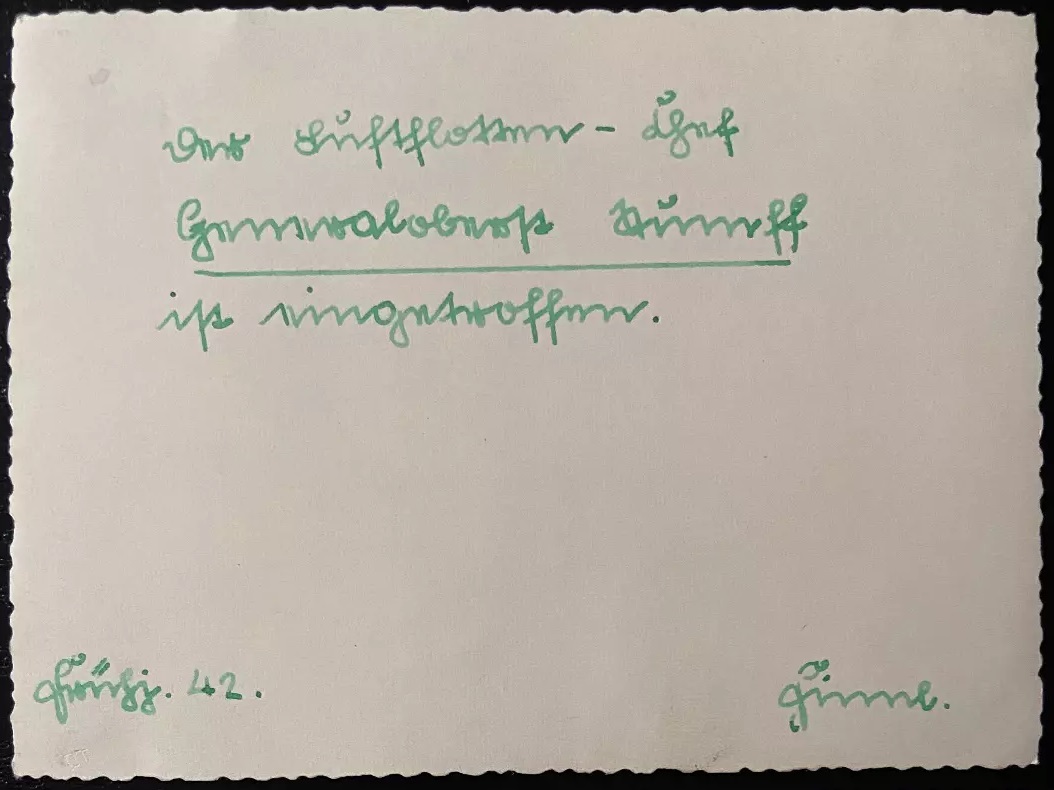 Der Luftflotten-Chef
Generaloberst Stumpff
ist eingetroffen.
Frühj. 42.
Finnl.